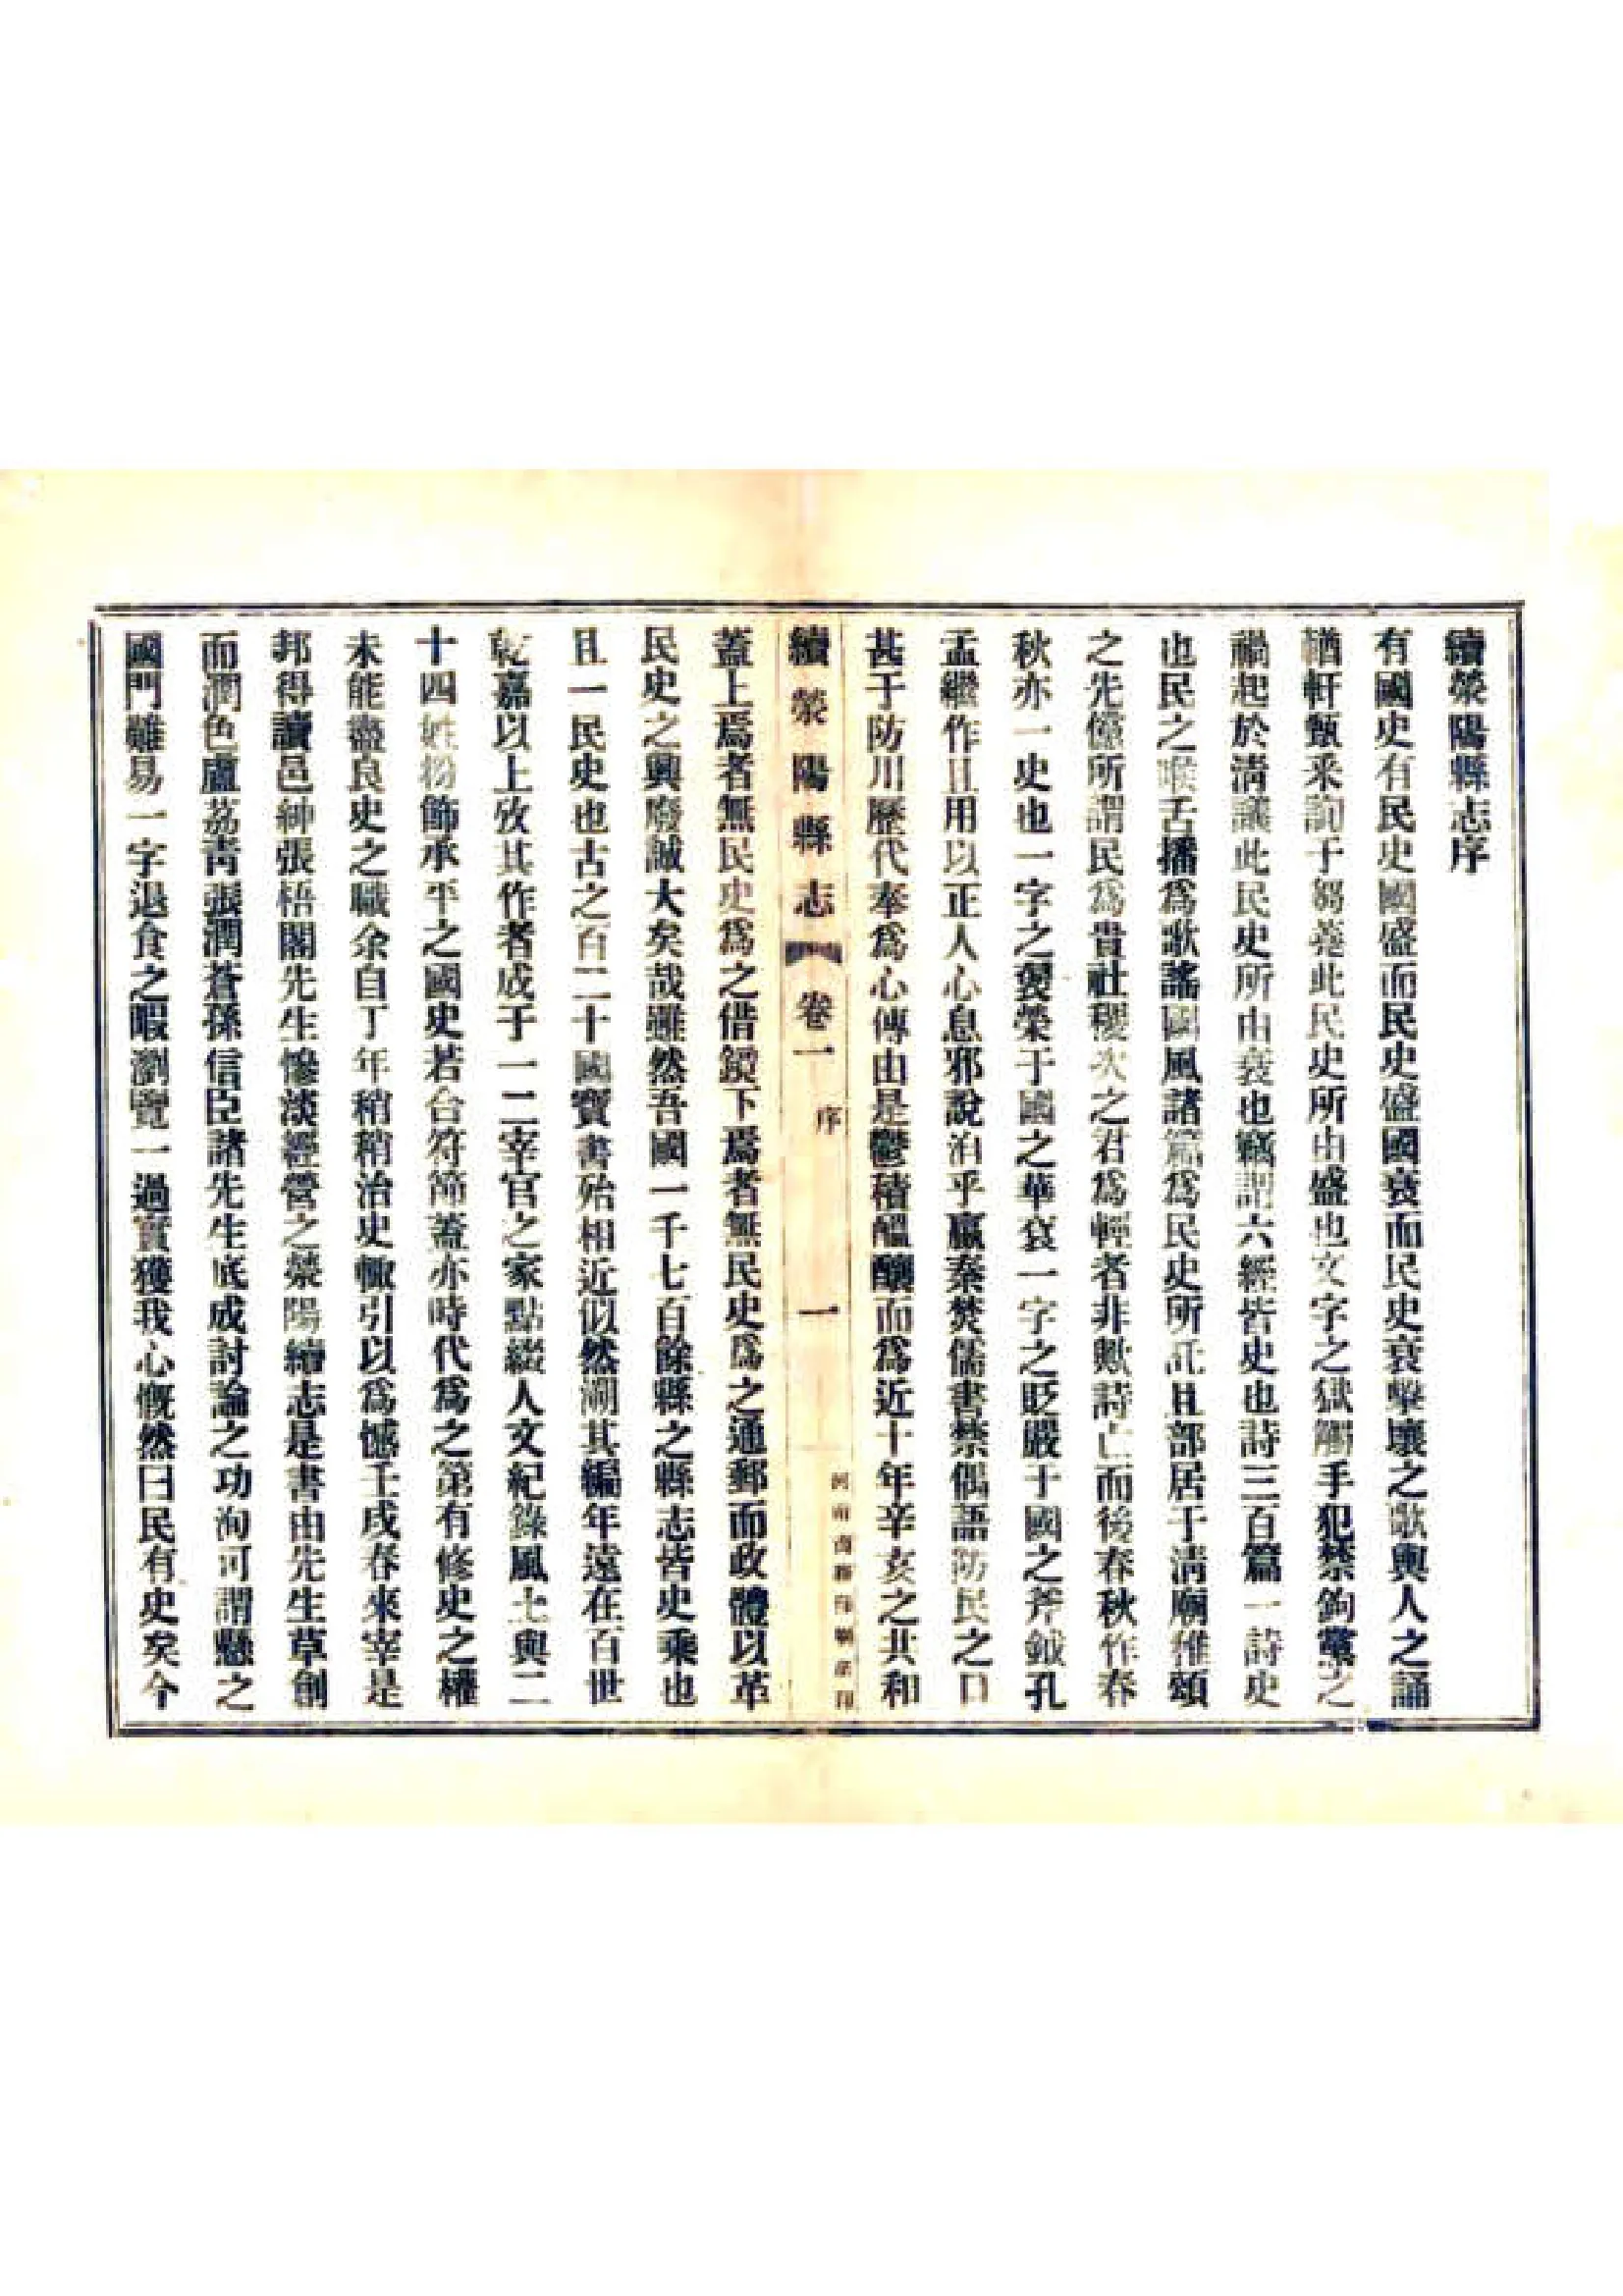 續滎陽縣志序
有國史有民史國盛而民史盛國衰而民史衰擊壤之歌輿人之誦
輶軒甄采詢于芻蕘此民史所由盛也文字之獄觸手犯禁鉤黨之
禍起於淸議此民史所由衰也竊謂六經皆史也詩三百篇一詩史
也民之喉舌播爲歌謠國風諸篇爲民史所託且部居于淸廟雅頌
之先僅所謂民爲貴社稷次之君爲輕者非歟詩亡而後春秋作春
秋亦一史也一字之褒榮于國之華袞一字之貶嚴于國之斧鉞孔
孟繼作且用以正人心息邪說洎乎嬴秦焚儒書禁偶語防民之口
甚于防川歷代奉爲心傳由是鬱積醞釀而爲近十年辛亥之共和
續滎陽縣志 卷一 序 一
河南商務印刷所印
蓋上焉者無民史爲之借鏡下焉者無民史爲之通郵而政體以革
民史之興廢誠大矣哉雖然吾國一千七百餘縣之縣志皆史乘也
且一民史也古之百二十國寶書殆相近似然溯其編年遠在百世
乾嘉以上攷其作者成于一二宰官之家點綴人文紀錄風土與二
十四姓粉飾承平之國史若合符節蓋亦時代爲之第有修史之權
未能盡良史之職余自丁年稍稍治史輒引以爲憾壬戌春來宰是
邦得讀邑紳張梧閣先生慘淡經營之滎陽續志是書由先生草創
而潤色盧茘靑張潤蒼孫信臣諸先生底成討論之功洵可謂懸之
國門難易一字退食之暇瀏覽一過實獲我心慨然曰民有史矣今